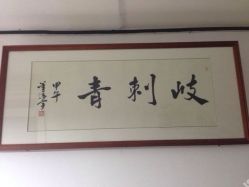 岐刺青
甲午